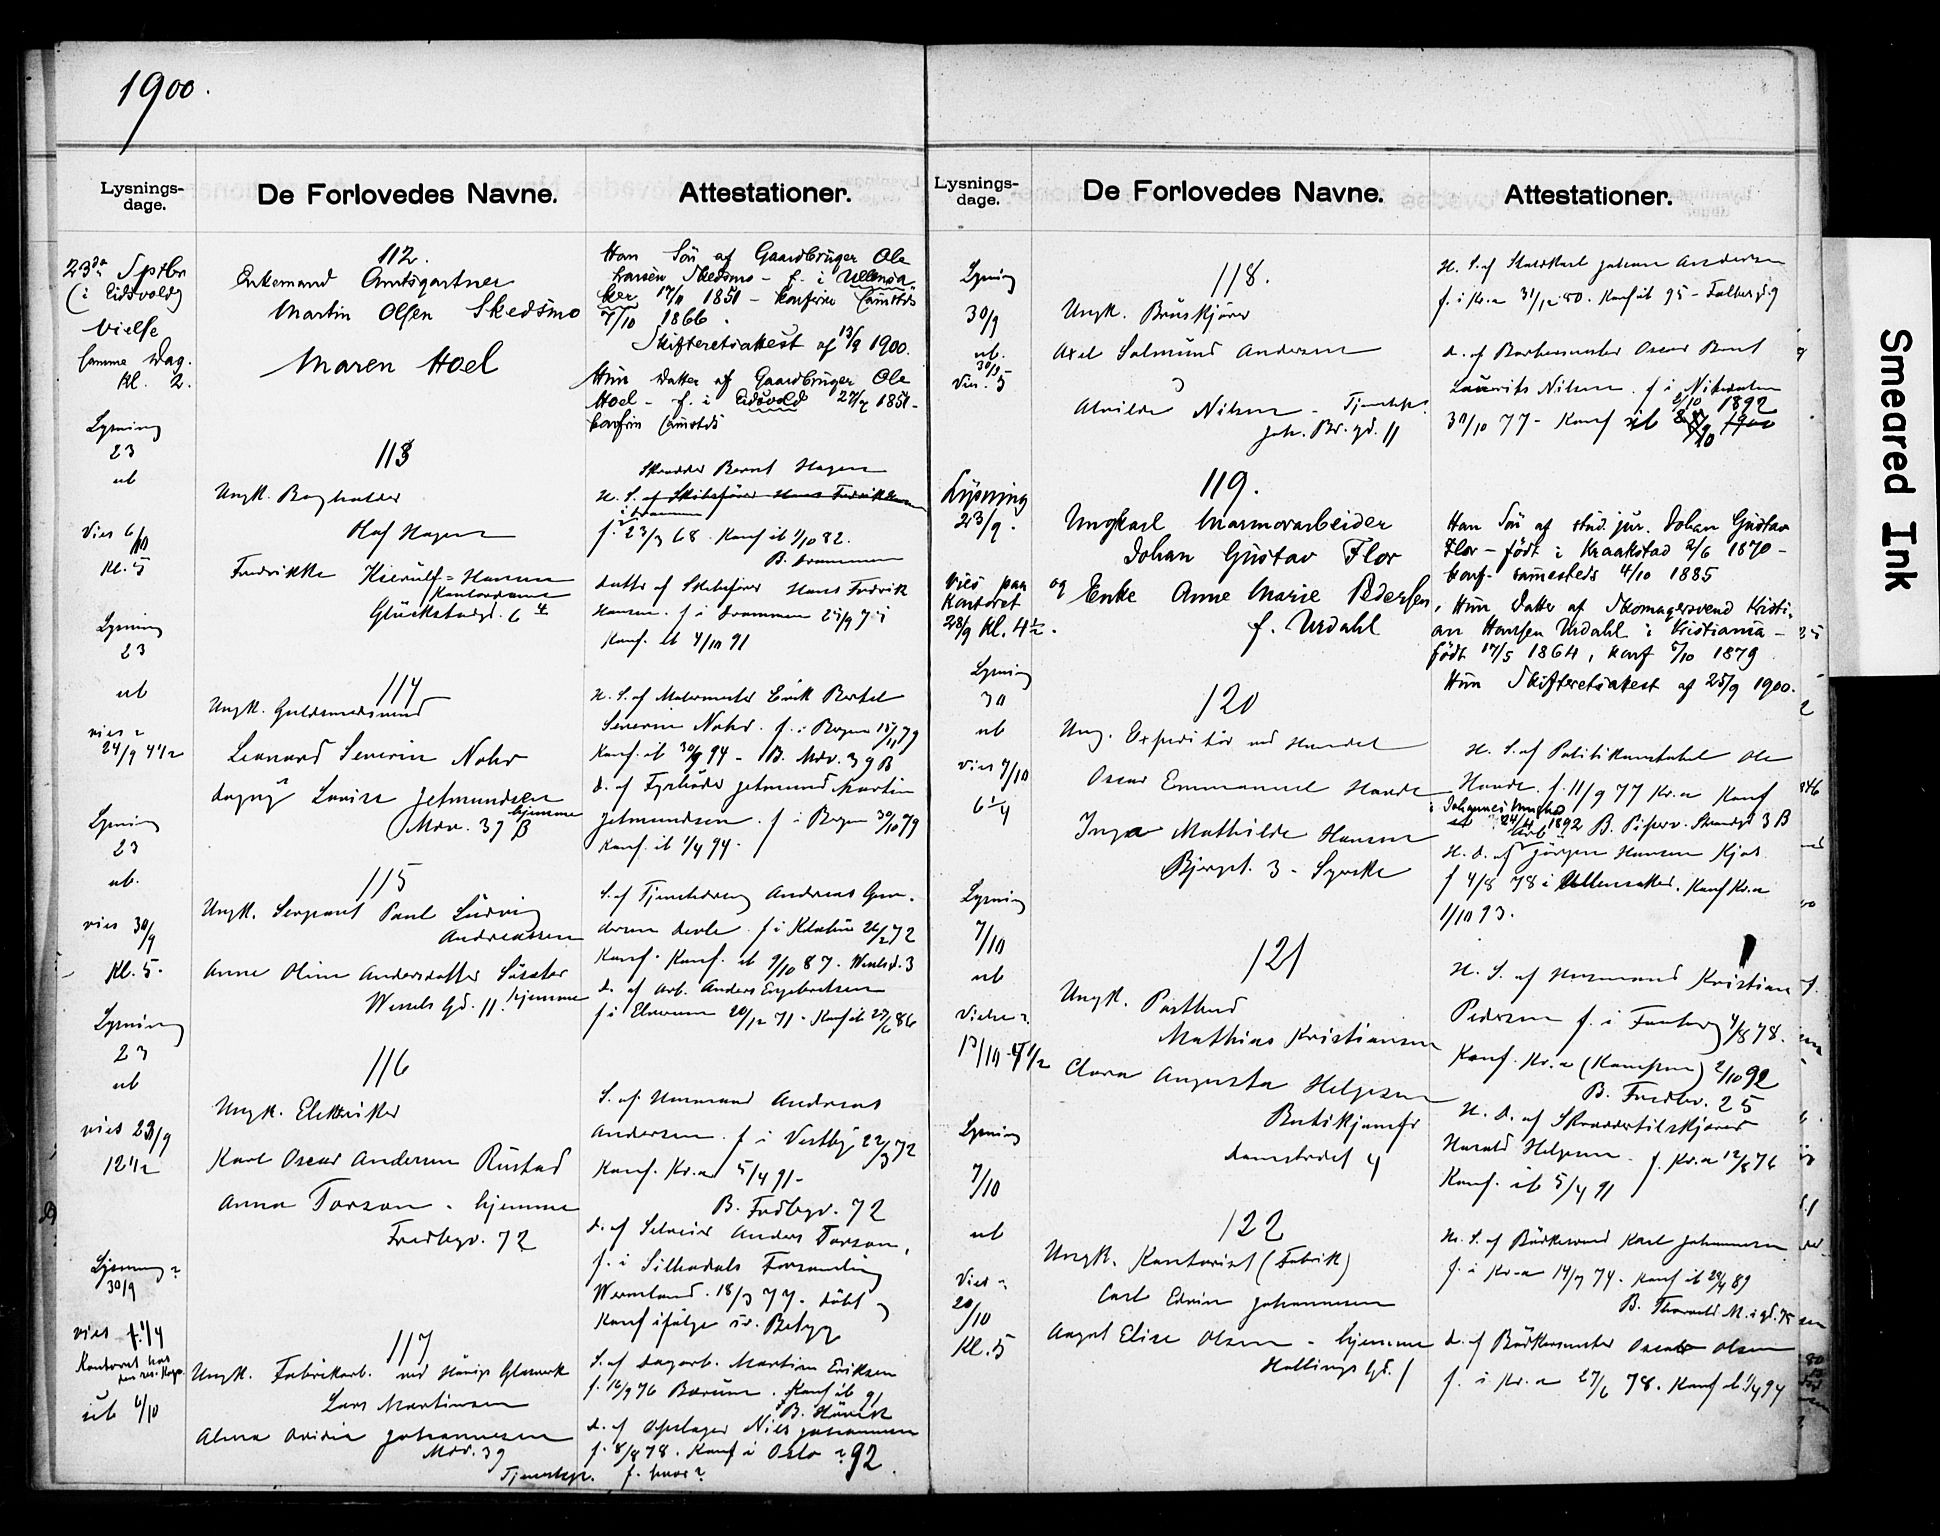 1900.
Lysnings-
dage.
De Forlovedes Navne.
Attestationer.
23de Sptbr
(i Eidsvold)
Vielse
samme Dag.
Kl. 2.
112.
Enkemand Amtsgartner
Martin Olsen Skedsmo
Maren Hoel
Han Søn af Gaardbruger Ole
Larsen Skedsmo - f. i Ullensa-
ker 17/11 1851 - konfirm samsteds
7/10 1866.
Skifteretsattest af 13/9 1900.
Hun Datter af Gaardbruger Ole
Hoel - f. i Eidsvold 27/7 1851 -
konfirm samsteds
Lysning
23
ub
Vies 6/10
Kl. 5
113
Ungk. Bogholder
Olaf Hagen
Fredrikke Kierulf-Hansen
Kontordame
Glückstadgd. 6 4
Skrædder Bernt Hagen
H. S. af Skibsfører Hans Fredrik Hansen
i Drammen
f. 23/3 68. Konf ib 1/10 82.
B. Drammen
Datter af Skibsfører Hans Fredrik
Hansen. f i Drammen 25/9 75
Konf. ib 4/10 91
Lysning
23
ub
vies
24/9 4 1/2
114
Ungk. Guldsmedsvend
Leonard Severin Nohr
Dagny Lovise Jetmundsen
hjemme
Mdv. 39 B
H. S. af Malermester Erik Bertel
Severin Nohr. f. i Bergen 15/11 79
Konf. ib 30/9 94 - B. Mdv. 39 B
D. af Fyrbøder Jetmund Martin
Jetmundsen. f i Bergen 30/10 79
Konf. ib 1/4 94.
Lysning
23
ub.
vies 30/9
Kl. 5.
115
Ungk. Sergeant Paul Ludvig
Andreassen
Anne Oline Andersdatter Sæter
Wessels Gd. 11. hjemme
S. af Tjenestedreng Andreas Gun-
dersen f i Klæbu 26/2 72
Konf. Konf. ib 9/10 87. Wesselsd. 3
D. af Arb. Anders Engebretsen
f i Elverum 20/12 71 - Konf ib 27/6 86
Lysning
23
ub
vies 23/9
12 1/2
116
Ungk. Elektriker
Karl Oscar Andersen Rustad
Anna Torson - hjemme
Fredbgv. 72
S. af Husmand Andreas
Andersen. f i Vestby 22/3 72
Konf. Kr.a 5/4 91 -
B. Fredbgv. 72
D. af Anders Torson,
f. i Silbodals Forsamling
Wermland. 18/3 77. Døbt og
Konf ifølge sv. Betyg
Lysning
30/9
vies
Kontoret hos
den res. Kap.
ub 6/10
117
Ungk. Fabrikarb. ved Høvigs Glasværk
Lars Martinsen
Alma Johannesen
Mdv. 39
Tjenestepi.
S. af Dagarb. Martin Eriksen
f. 16/9 76 Bærum. Konf ib 91
B. Høvik
D. af Opslager Nils Johannesen
f. 8/8 78. Konf i Oslo 92
f. hvor?
Lysnings-
dage.
De Forlovedes Navne.
Attestationer.
Lysning
30/9
ub.
30/9
Vies. 5
118.
Ungk. Bruskjører
Axel Salmund Andersen
Alvilde Nilsen - Tjenestepi.
Joh. Br. gd. 11
H. S. af Johan Andersen
f. i Kr.a 31/12 80. Konf ib 95 -
D. af Børstenmester Oscar Bernt
Laurits Nilsen. f i Nitedalen
31/10 77 - Konf ib 2/10 1892
Lysning
23/9.
Vies paa
Kontoret
28/9 Kl. 4 1/2.
119.
Ungkarl Marmorarbeider
Johan Gustav Flor
og Enke Anne Marie Pedersen
f. Urdahl
Han Søn af stud. jur. Johan Gustav
Flor - født i Kraakstad 2/6 1870 -
konf. samesteds 4/10 1885
Hun Datter af Skomagersvend Kristi-
an Hansen Urdahl i Kristiania -
født 17/5 1864, konf 5/10 1879
Hun Skifteretsattest af 25/9 1900.
Lysning
30
ub
vies 7/10
6 1/4
120
Ung. Expeditør ved Handel
Oscar Emmanuel Havde
Inga Mathilde Hansen
Bjergst. 3 - Syerske
H. S. af Politikonstabel Ole
Havde. f. 11/9 77 Kr.a Konf
ib 24/4 1892 B. Pilestr. 3 B
H. D. af Jørgen Hansen
f 4/8 78 i Ullensaker. Konf Kr.a
1/10 93.
Lysning
7/10
ub
Vielse
13/10 6 1/2
121
Ungk. Postbud
Mathias Kristiansen
Clara Augusta Helgesen
Butikjomfr
Damstrædet 4
H. S. af Husmand Kristian
Pedersen f. i Faaberg 4/8 78.
Konf. Kr.a (Kampen) 2/10 92
B. Fredbv. 25
H. D. af Skræddertilskjærer
Harald Helgesen. f. Kr.a 12/8 76
Konf. ib 5/4 91
Lysning
7/10
ub
Vies
20/10
Kl. 5
122
Ungk. Kontorist (Fabrik)
Carl Edvin Johannesen
Aagot Elise Olsen - hjemme
Hallings Gd. 1
H. S. af Bødkersvend Karl Johannesen
f. i Kr.a 14/7 74. Konf ib 28/4 89
B. Thorvald M. s gd. 75
D. af Bødkermester Oscar Olsen
f. i Kr.a 27/6 78. Konf ib 1/4 94
Smeared Ink